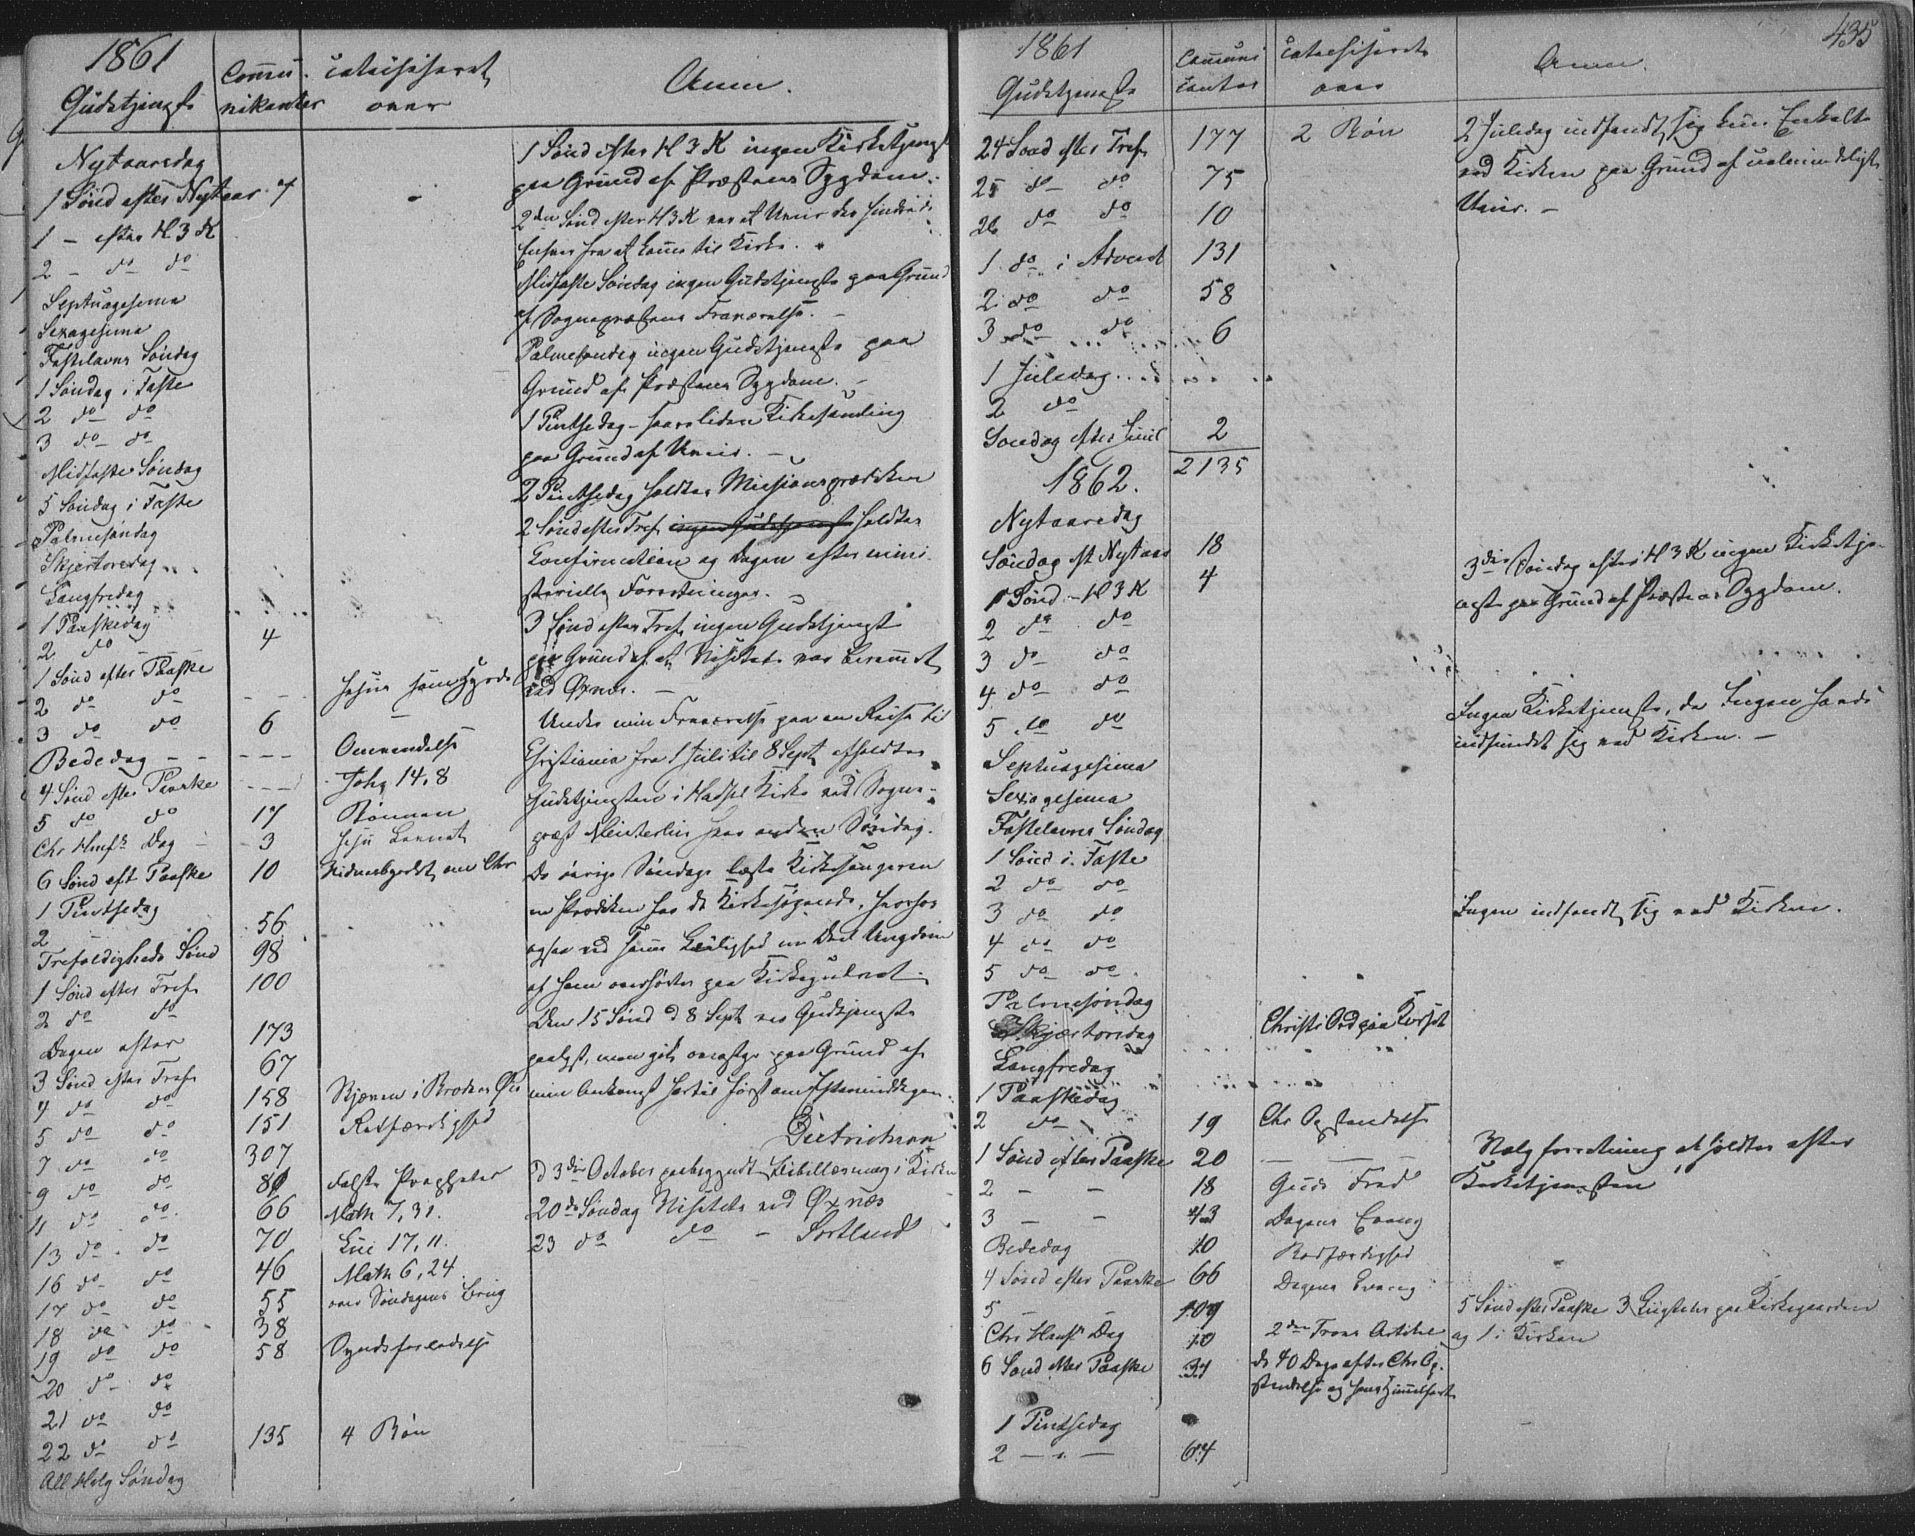 1861
Gudstjeneste
Commu-
nikanter
Catechiseret
over
Anm.
Nytaarsdag
1 Sønd efter Nytaar 7
1 – efter H 3 K
2 – do do
Septuagesima
Sexagesima
Fastelavns Søndag
1 Søndag i Faste
2 do do
3 do do
Midfaste Søndag
5 Søndag i Faste
Palmesøndag
Skjertorsdag
Langfredag
1 Paaskedag
2 do – 4
1 Sønd efter Paaske
2 do do
3 do do 6
Bededag – Omvendelse
4 Sønd efter Paaske Joh 14,8
5 do do 17 Bønnen
Chr Hmfs Dag – 3
6 Sønd eft Paaske 10 Vidnesbyrdet om Chr
1 Pintsedag
2 – 56
Trefoldigheds Sønd 98
1 Sønd efter Tref 100
2 do do
Dagen efter 173
3 Sønd efter Tref 67
4 do do 158 Bjælken i Broders Øie
5 do do 151 Retfærdighed
7 do do 307
9 do do 80 Falske Propheter
11 do do 66 Math 7,31.
13 do do 70 Luc 17,11.
16 do do 46 Math 6,24
17 do do 55 over Søndagens Brug
18 do do 38
19 do do 58 Syndsforladelse
20 do do
21 do do
22 do do 135 4 Bøn
All Helg Søndag
1 Sønd efter H 3 K ingen Kirketjenest
paa Grund af Præstens Sygdom.
2den Sønd efter H 3 K var et Uveir der hindrede
fra at komme til Kirke.
Midfaste Søndag ingen Gudstjeneste paa Grund
af Sognepræstens Fraværelse. –
Palmesøndag ingen Gudstjeneste paa
Grund af Præstens Sygdom. –
1 Pintsedag – saare liden Kirkesamling
paa Grund af Uveir. –
2 Pintsedag holdtes Missionsprædiken
2 Sønd efter Tref ingen Gudstjenest holdtes
Confirmation og Dagen efter mini-
sterielle Forretninger. –
3 Sønd efter Tref ingen Gudstjenest
paa Grund af at Visitats var berammet
ved Øxnes. –
Under min Fraværelse paa en Reise til
Christiania fra 1 Juli til 8 Sept afholdtes
Gudstjenesten i Hadsel Kirke ved Sogne-
præst hver anden Søndag.
De øvrige Søndage læste Kirkesangeren
en Prædiken for de Kirkesøgende, hvorhos
ogsaa ved samme Leilighed en Deel Ungdom
af ham overhørtes paa Kirkegulvet.
Den 15 Sønd d 8 Sept var Gudstjeneste
paalyst, men gik overstyr paa Grund af
min Ankomst hertil først om Eftermiddagen.
Dietrichson
d 3die October paabegyndt Bibellæsning i Kirken
20de Søndag Visitats ved Øxnæs
23 do do – Sortland
435
1861
Gudstjeneste
Communi
canter
Catechiseret
over
Anm.
24 Sønd efter Tref 177 2 Bøn
25 do do 75
26 do do 10
1 do i Advent 131
2 do do 58
3 do do 6
1 Juledag
2 do
Søndag efter Juul 2
2135
1862.
Nytaarsdag
Søndag eft Nytaar 18
1 Sønd – H 3 K 4
2 do do
3 do do
4 do do
5 do do
Septuagesima
Sexagesima
Fastelavns Søndag
1 Sønd i Faste
2 do do
3 do do
4 do do
5 do do
Palmesøndag
Skjærtorsdag Christi Ord paa Korset
Langfredag
1 Paaskedag
2 do 19 Chr Opstandelse
1 Sønd efter Paaske 20 –
2 – – 18 Guds Fred
3 – – 43 Dagens Evang
Bededag 10 Retfærdighed
4 Sønd efter Paaske 66 Dagens Evang
5 – – 109
Chr Hmfs Dag 10 2den Troes Artikel
6 Sønd efter Paaske 34 de 40 Dage efter Chr Op-
standelse og hans Himmelfart
1 Pintsedag
2 – – 64
2 Juledag indfandt sig kun Enkelte
ved Kirken paa Grund af ualmindeligt
Uveir. –
3die Søndag efter H 3 K ingen Kirketje-
neste paa Grund af Præstens Sygdom.
Ingen Kirketjeneste, da Ingen havde
indfundet sig ved Kirken. –
Ingen indfandt sig ved Kirken.
Valgforretning afholdtes efter
Kirketjenesten
5 Sønd efter Paaske 3 Liigtaler paa Kirkegaarden
og 1 i Kirken